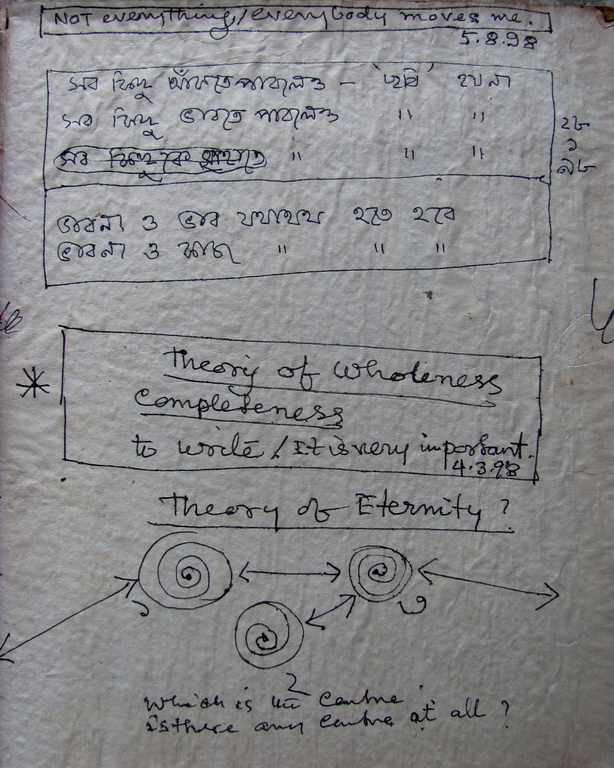 NOT everything,/everybody moves me.
5.8.98
সব কিছু আঁকতে পারলেও – 'ছবি' হয় না
সব কিছু ভাবতে পারলেও " "
সব কিছুকে " " "
২৮
১
৯৮
ভাবনা ও ভাব যথাযথ হতে হবে
ভাবনা ও কাজ " " "
Theory of Wholeness
Completeness
to write / It is very important.
4.3.98
Theory of Eternity ?
১
৩
২
Which is the centre .
is there any centre at all ?